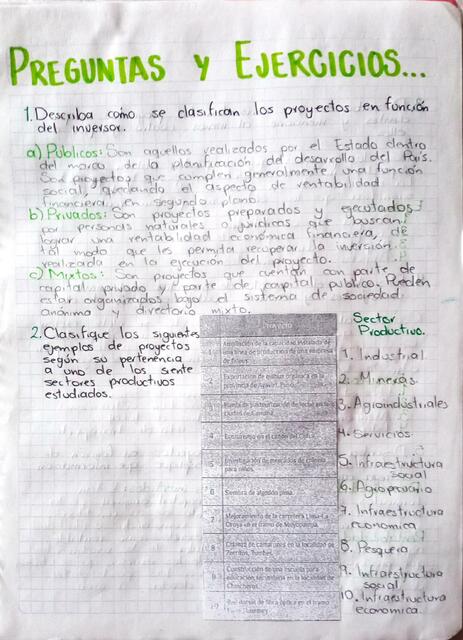 PREGUNTAS Y EJERCICIOS...
1. Describa cómo se clasifican los proyectos en función
del inversor.
a) Públicos: Son aquellos realizados por el Estado dentro
del marco de la planificación del desarrollo del País.
Son proyectos que cumplen generalmente una función
social, quedando el aspecto de rentabilidad
financiera en segundo plano.
b) Privados: Son proyectos preparados y ejecutados
por personas naturales o jurídicas que buscan
lograr una rentabilidad económica financiera, de
tal modo que les permita recuperar la inversión
realizada en la ejecución del proyecto.
c) Mixtos: Son proyectos que cuentan con parte de
capital privado y parte de capital público. Pueden
estar organizados bajo el sistema de sociedad
anónima y directorio mixto.
2. Clasifique los siguientes
ejemplos de proyectos
según su pertenencia
a uno de los siente
sectores productivos
estudiados.
Proyecto
Ampliación de la capacidad instalada de
una línea de producción de una empresa
en el cañón del Colca
5 Investigación de mercados de
para niños
6 Siembra de algodón pima.
7 Mejoramiento de la carretera Lima-La
Oroya en el tramo de
8 Crianza de camarones en la localidad de
Zorritos, Tumbes.
9 Construcción de una escuela para
educación secundaria en la localidad de
Chincheros
10 de fibra óptica en el tramo
Sector
Productivo.
1. Industrial
2. Minerás
3. Agroindustriales
4. Servicios
5. Infraestructura
social
6. Agropecuario
7. Infraestructura
economica
8. Pesquera
9. Infraestructura
social
10. Infraestructura
economica.